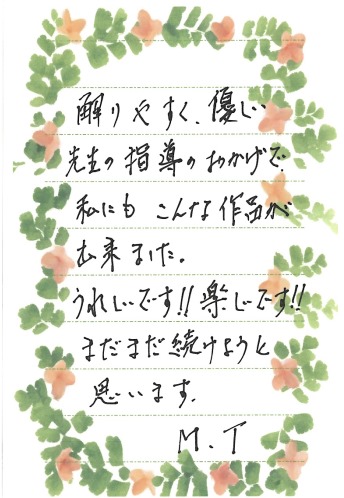 解りやすく、優しい
先生の指導のおかげで
私にも こんな作品が
出来ました。
うれしいです!! 楽しいです!!
まだまだ続けようと
思います。
M.T